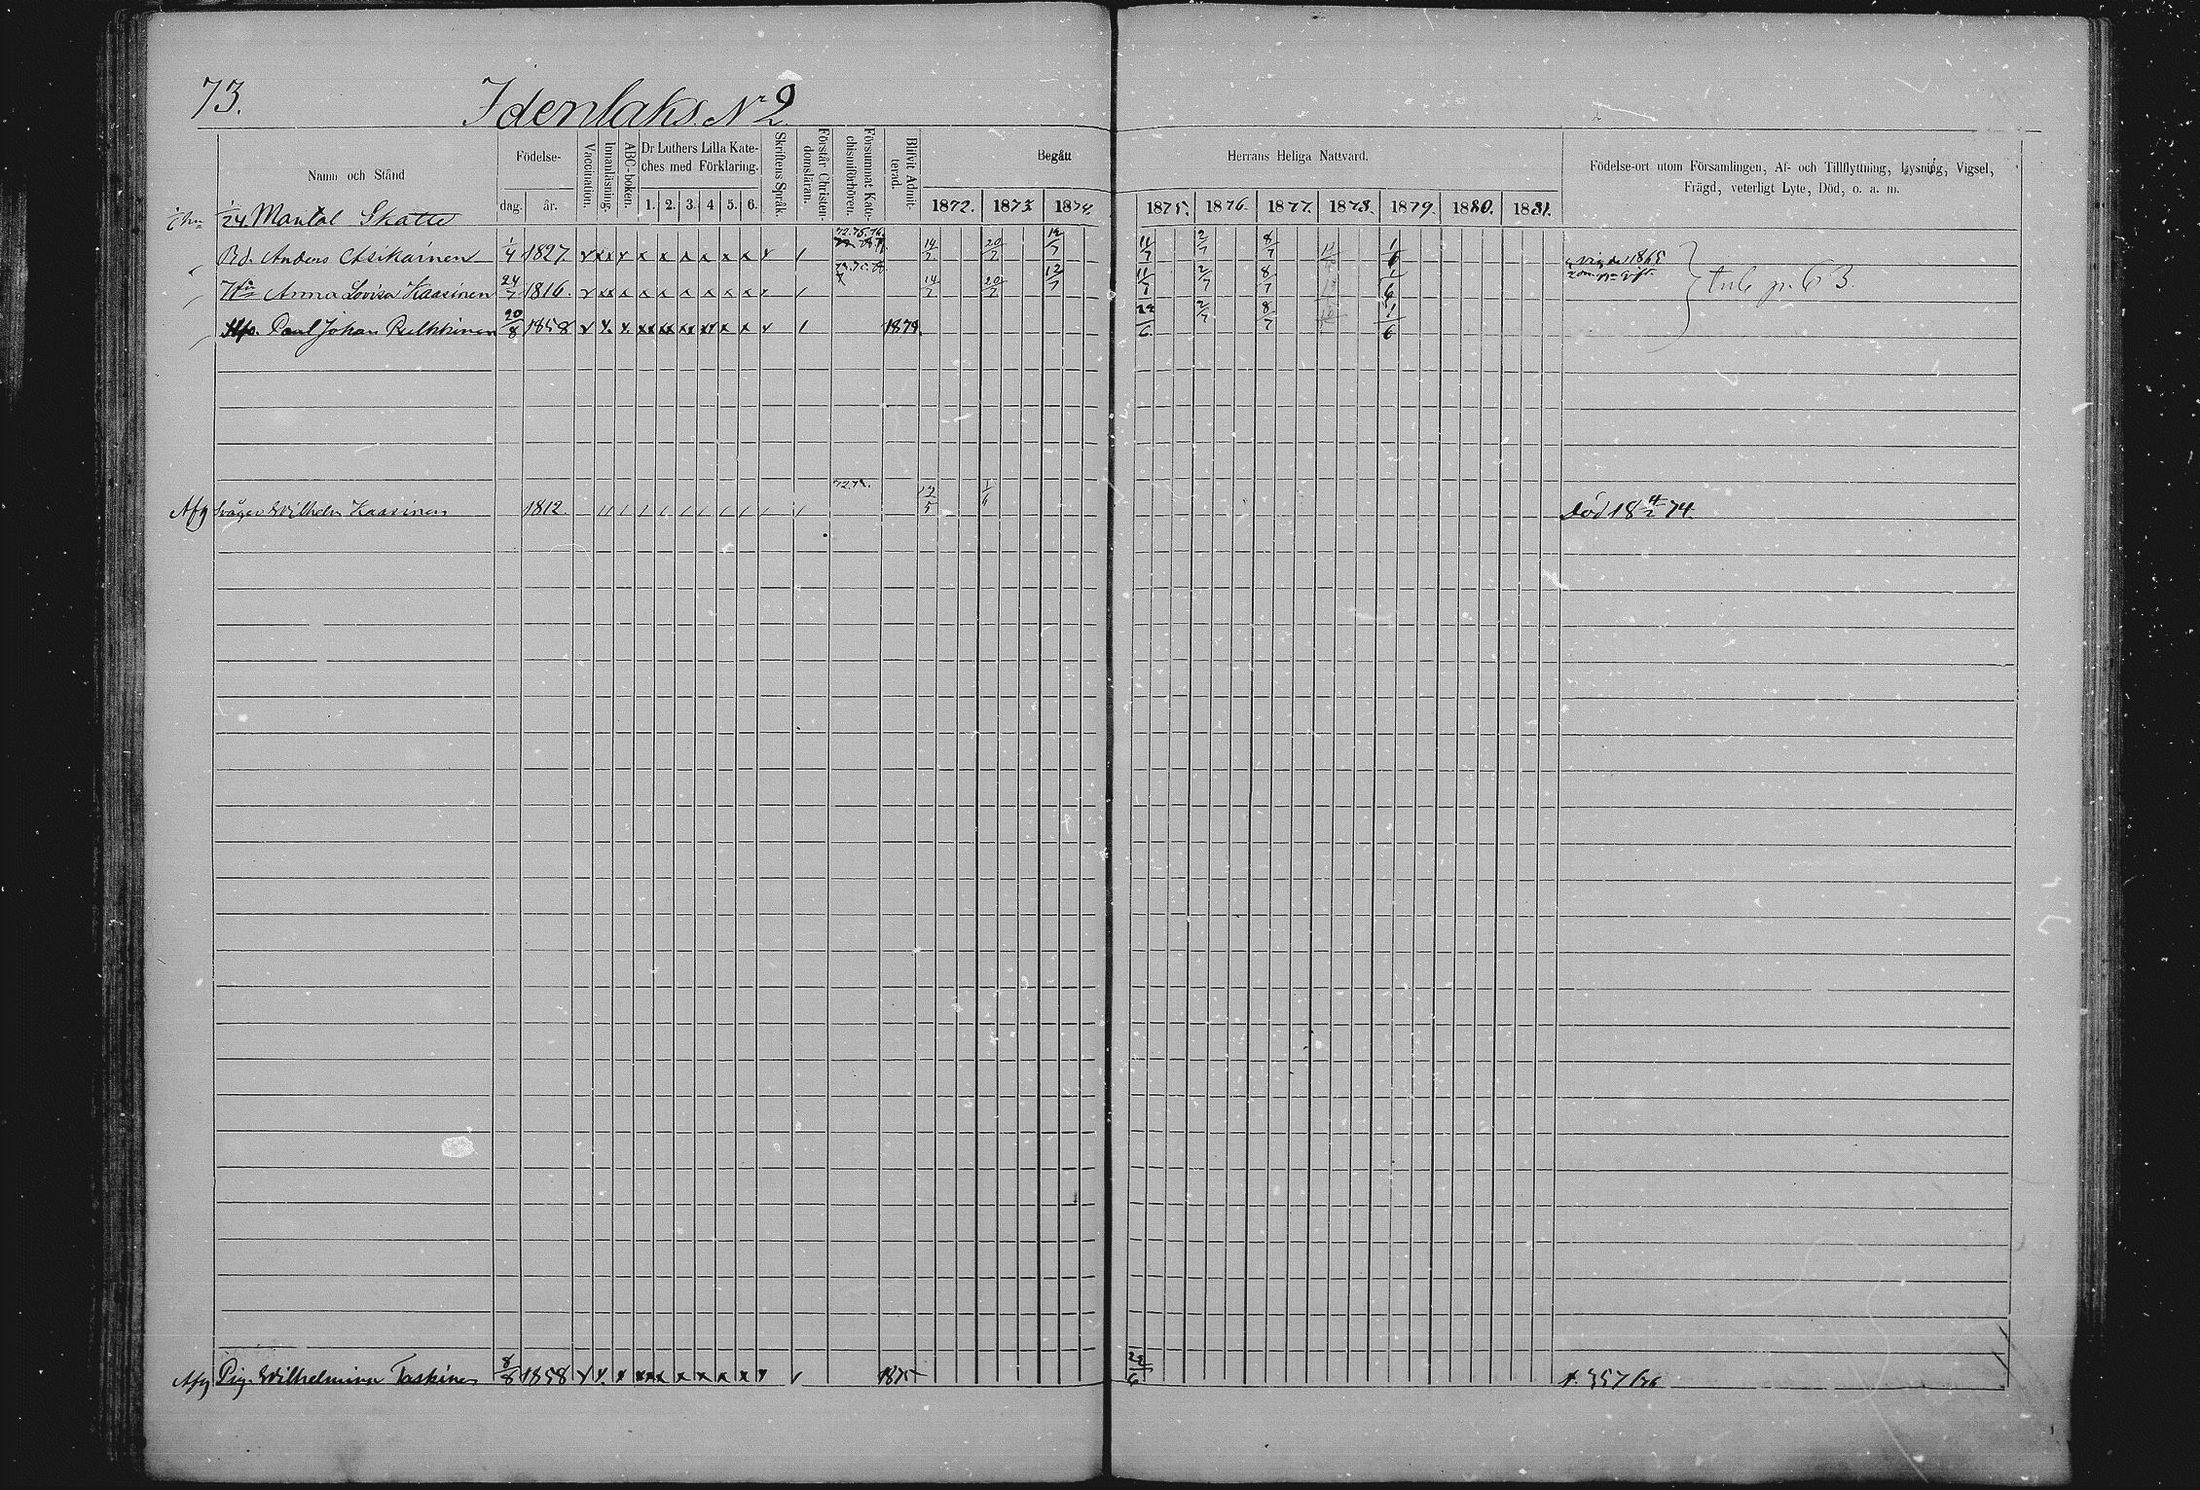 73.
Idenlaks. Nr 2
Namn och Stånd
Födelse-
dag. år.
Vaccination.
Innanläsning.
ABC-boken.
Dr Luthers Lilla Kate-
ches med Förklaring.
1. 2. 3. 4 5. 6.
Skriftens Språk.
Förstår Christen-
domsläran.
Försummat Kate-
chismiförhören.
Blifvit Admit-
terad.
Begått Herrans Heliga Nattvard.
1872. 1873 1874. 1875. 1876. 1877. 1878. 1879. 1880. 1881.
Födelse-ort utom Församlingen, Af- och Tillflyttning, Lysning, Vigsel,
Frägd, veterligt Lyte, Död, o. a. m.
1/24 Mantal Skatte
Bd. Anders Asikainen 1/4 1827. 14/7 20/7 12/7 11/7 2/7 8/7 1/6 vigde 1865
Hu Anna Lovisa Kaasinen 24/7 1816. 14/7 20/7 12/7 11/7 2/7 8/7 1/6 p. 63.
Paul Johan Pulkkinen 20/8 1858 1874. 22/6 2/7 8/7 1/6
Afg Svåger Wilhelm Kaasinen 1812 död 18 4/2 74.
Afg Pig. Wilhelmina Taskinen 8/8 1858 1875 22/6 357/76